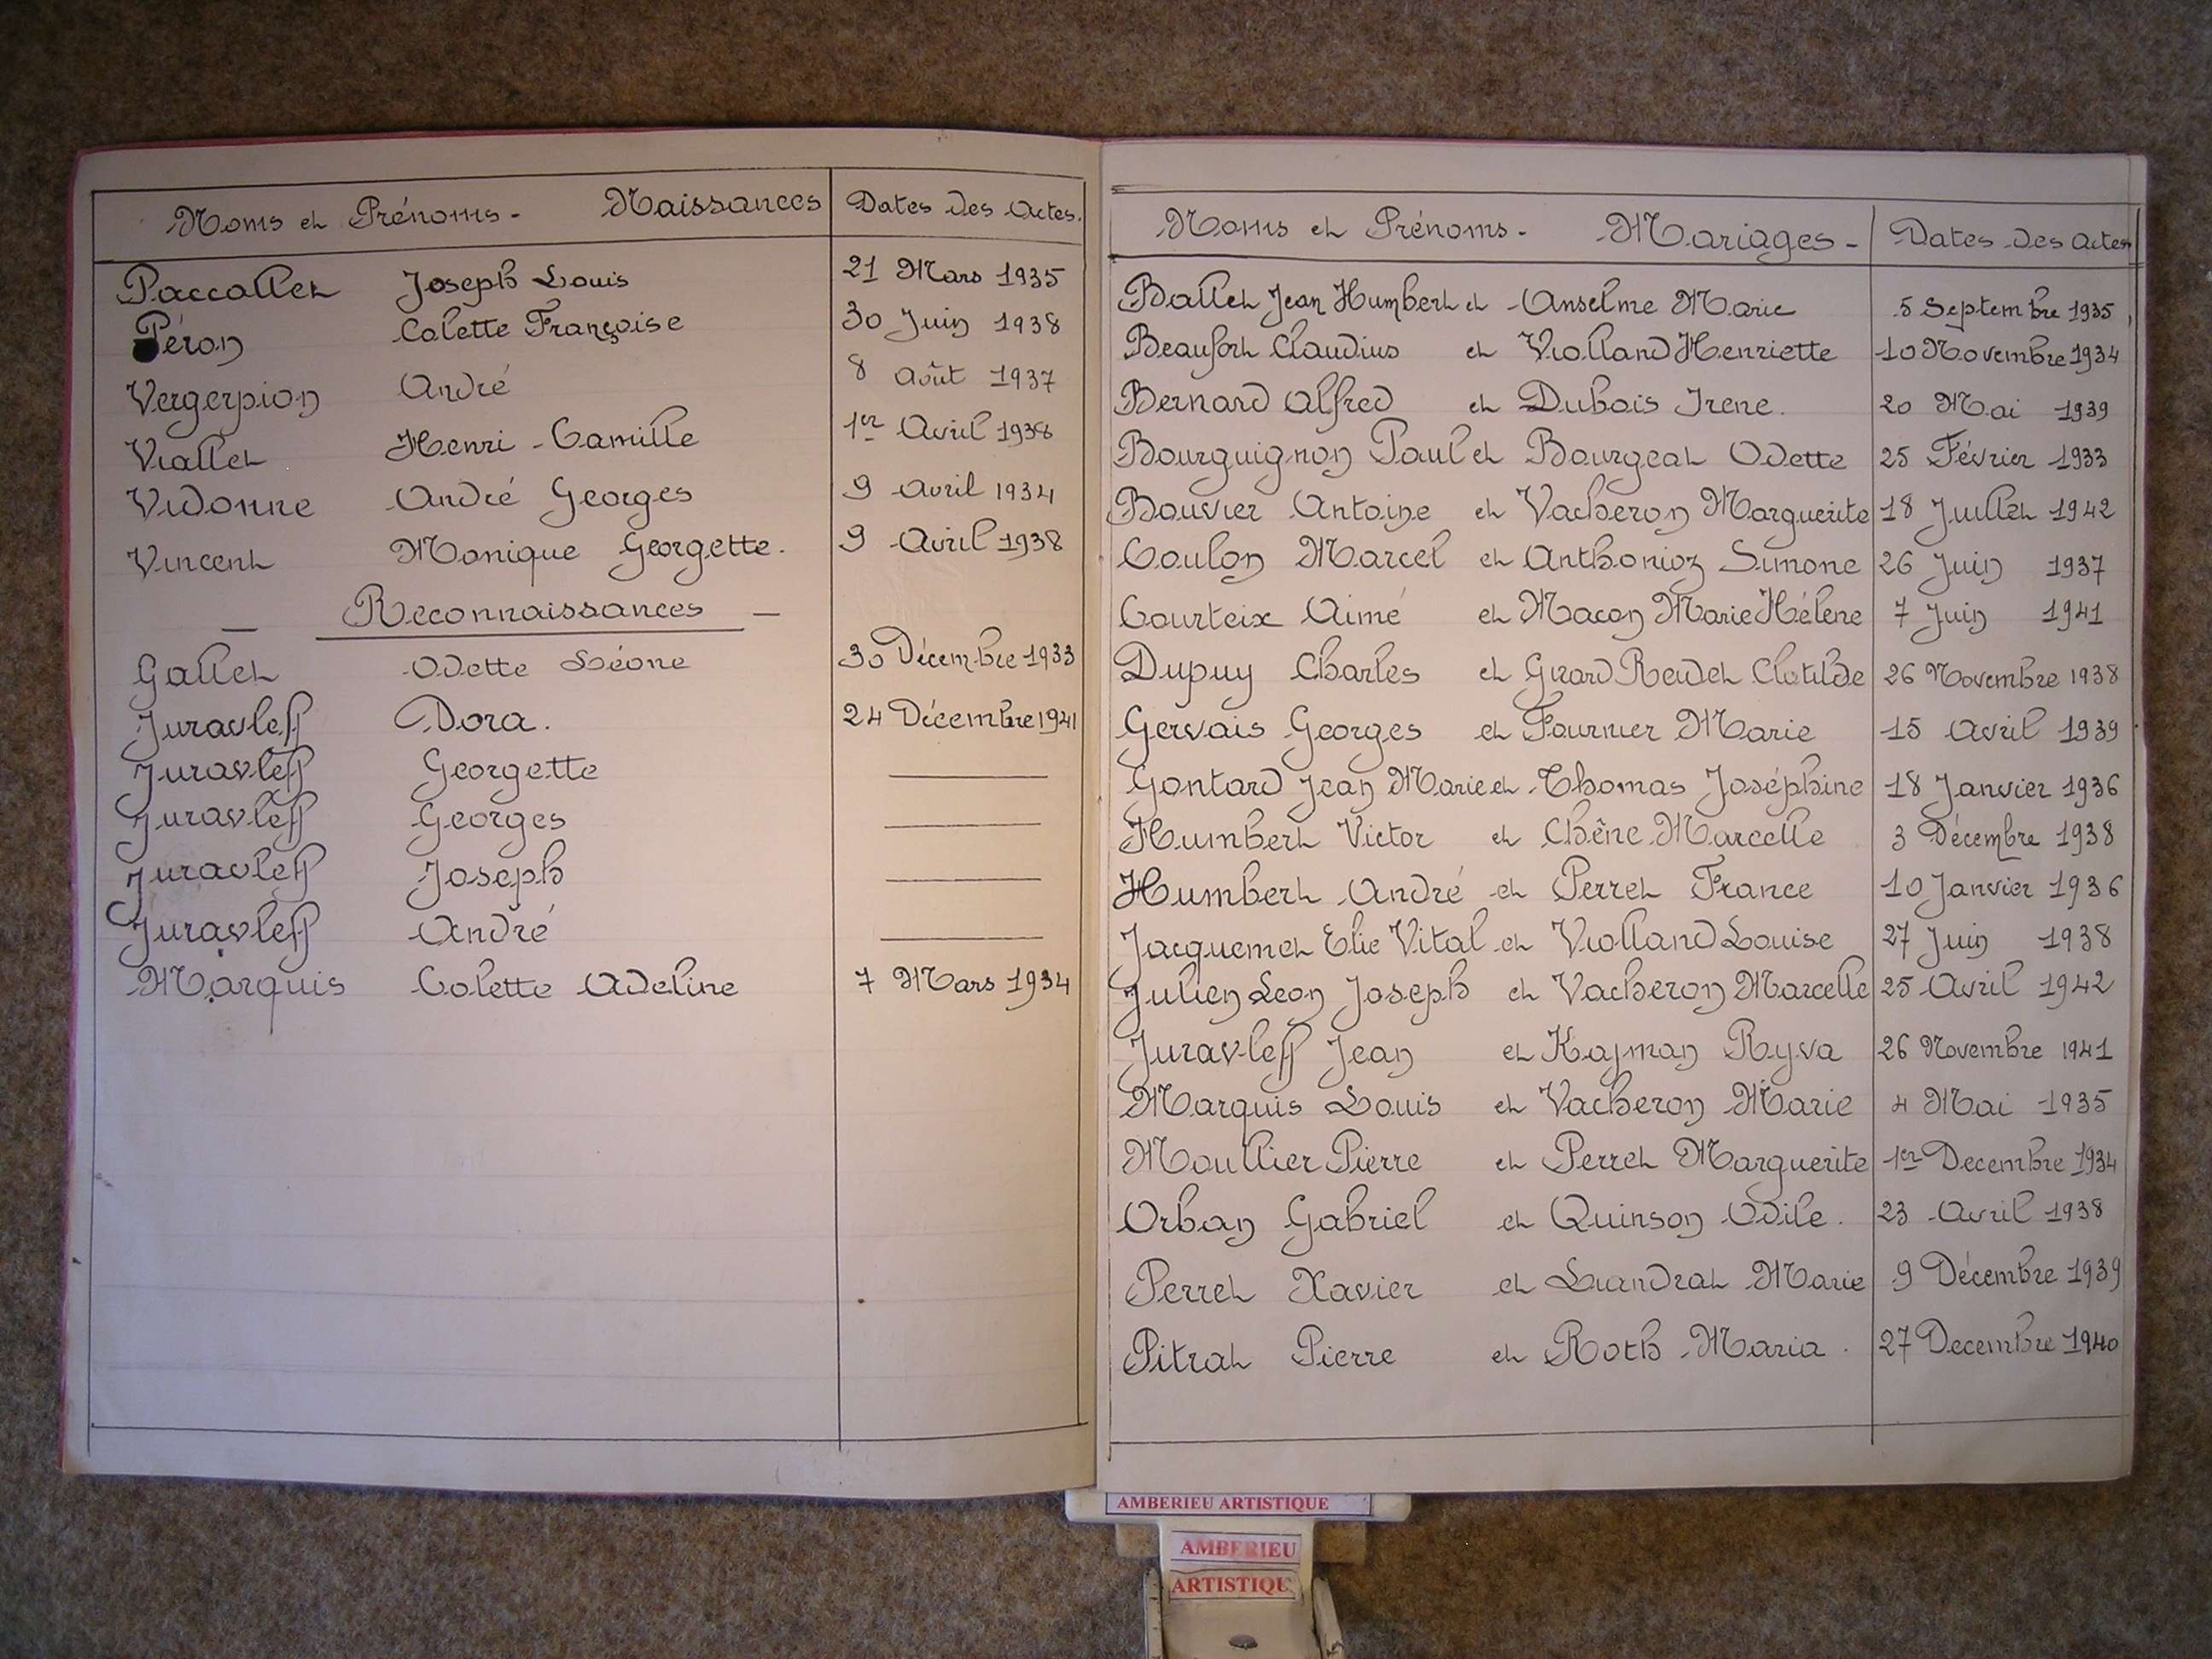 Noms et Prénoms - Naissances Dates des Actes.
Paccallet Joseph Louis 21 Mars 1935
Péron Colette Françoise 30 Juin 1938
Vergerpion André 8 Août 1937
Viallet Henri - Camille 1er Avril 1938
Vidonne André Georges 9 Avril 1934
Vincent Monique Georgette. 9 Avril 1938
— Reconnaissances —
Gallet Odette Léone 30 Décembre 1933
Juravleff Dora. 24 Décembre 1941
Juravleff Georgette —
Juravleff Georges —
Juravleff Joseph —
Juravleff André —
Marquis Colette Adeline 7 Mars 1934
Noms et Prénoms - Mariages - Dates des actes
Ballet Jean Humbert et Anselme Marie 5 Septembre 1935
Beaufort Claudius et Violland Henriette 10 Novembre 1934
Bernard Alfred et Dubois Irene. 20 Mai 1939
Bourguignon Paul et Bourgeat Odette 25 Février 1933
Bouvier Antoine et Vacheron Marguerite 18 Juillet 1942
Coulon Marcel et Anthonioz Simone 26 Juin 1937
Courteix Aimé et Macon Marie Hélène 7 Juin 1941
Dupuy Charles et Girard Reydet Clotilde 26 Novembre 1938
Gervais Georges et Fournier Marie 15 Avril 1939
Gontard Jean Marie et Thomas Joséphine 18 Janvier 1936
Humbert Victor et Chêne Marcelle 3 Décembre 1938
Humbert André et Perret France 10 Janvier 1936
Jacquemet Elie Vital et Violland Louise 27 Juin 1938
Julien Leon Joseph et Vacheron Marcelle 25 Avril 1942
Juravleff Jean et Kajman Ryva 26 Novembre 1941
Marquis Louis et Vacheron Marie 4 Mai 1935
Moullier Pierre et Perret Marguerite 1er Decembre 1934
Orban Gabriel et Quinson Odile. 23 Avril 1938
Perret Xavier et Luandrat Marie 9 Décembre 1939
Pitrat Pierre et Roth Maria. 27 Decembre 1940
AMBERIEU ARTISTIQUE
AMBERIEU
ARTISTIQU